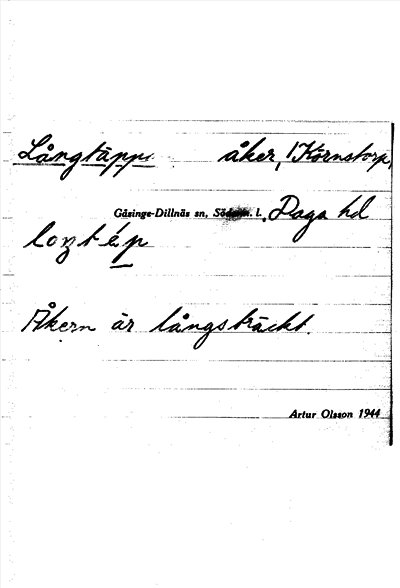 Långtäppa åker, Körnstorp,
Gåsinge-Dillnäs sn, Söderm. l. Daga hd
Åkern är långsträckt.
Artur Olsson 1944